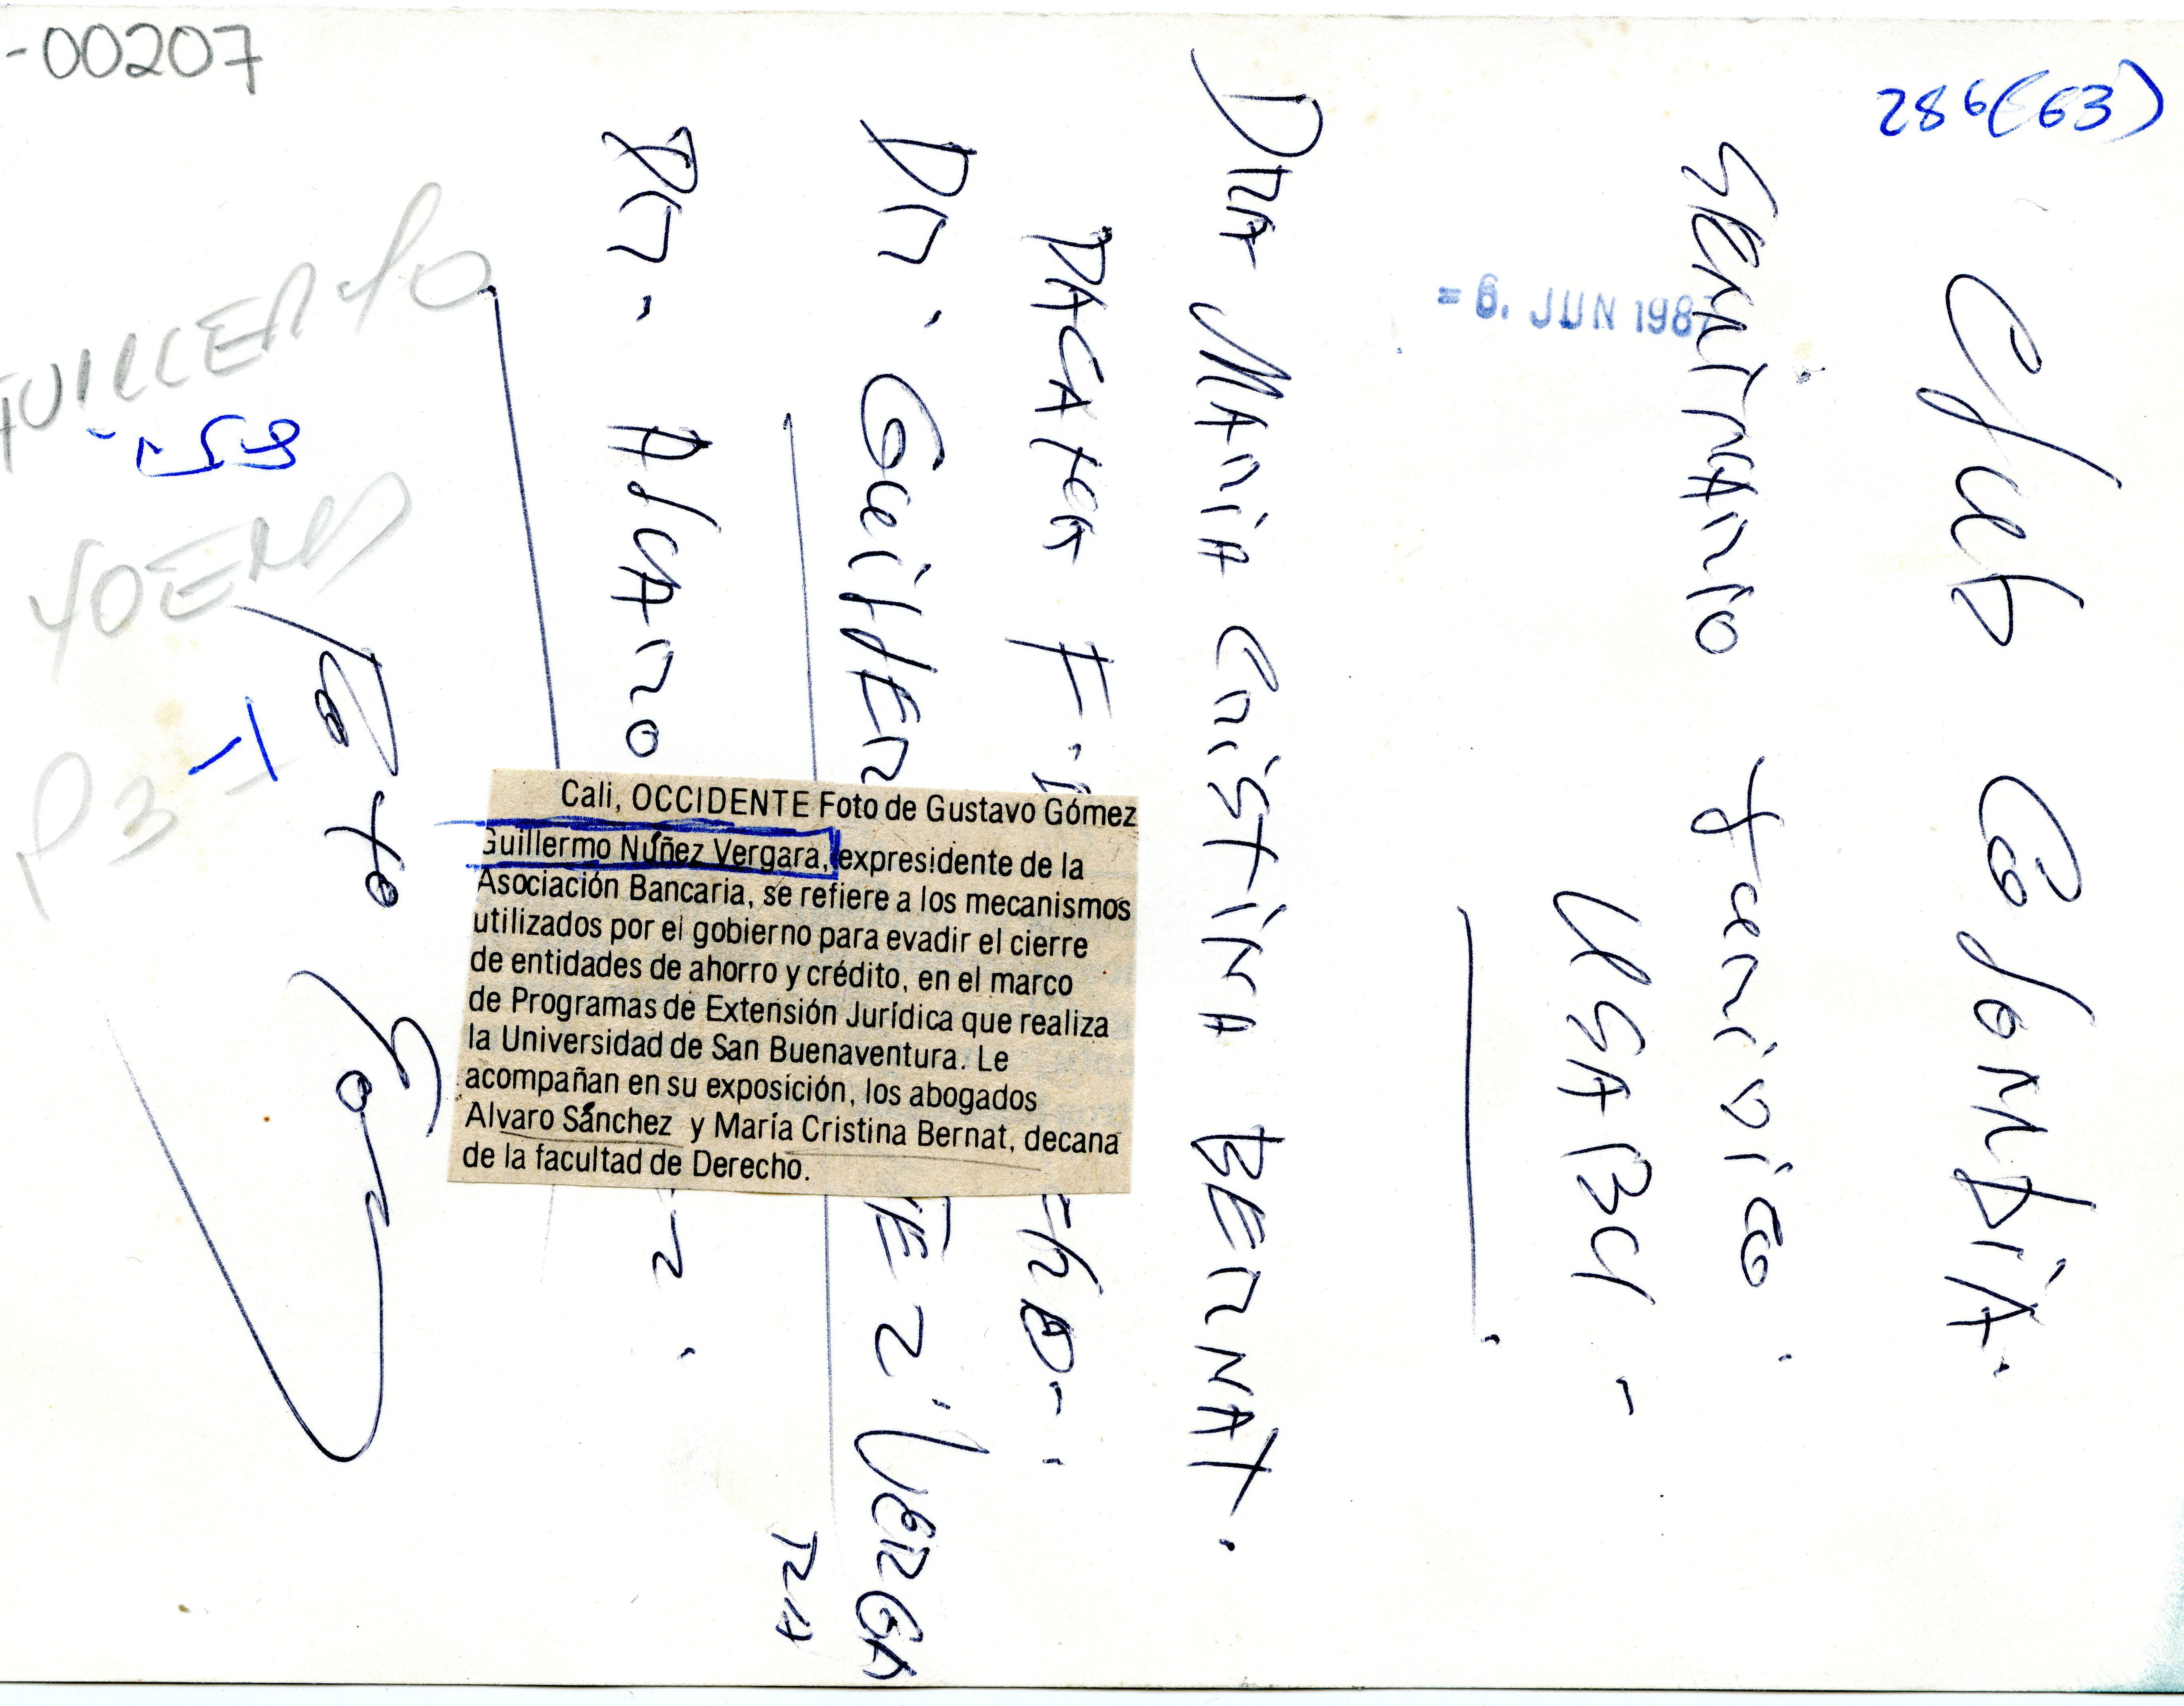 -00207
286(63)
= 6. JUN 1987
Club Colombia.
SEMINARIO Juridico.
USABU -
DRA MARIA CRISTINA BERNAT.
DR. Guiller EZ VERGA
RA
DR. Alvaro
Foto Gom
P3
Cali, OCCIDENTE Foto de Gustavo Gómez
Guillermo Núñez Vergara, expresidente de la
Asociación Bancaria, se refiere a los mecanismos
utilizados por el gobierno para evadir el cierre
de entidades de ahorro y crédito, en el marco
de Programas de Extensión Jurídica que realiza
la Universidad de San Buenaventura. Le
acompañan en su exposición, los abogados
Alvaro Sánchez y María Cristina Bernat, decana
de la facultad de Derecho.